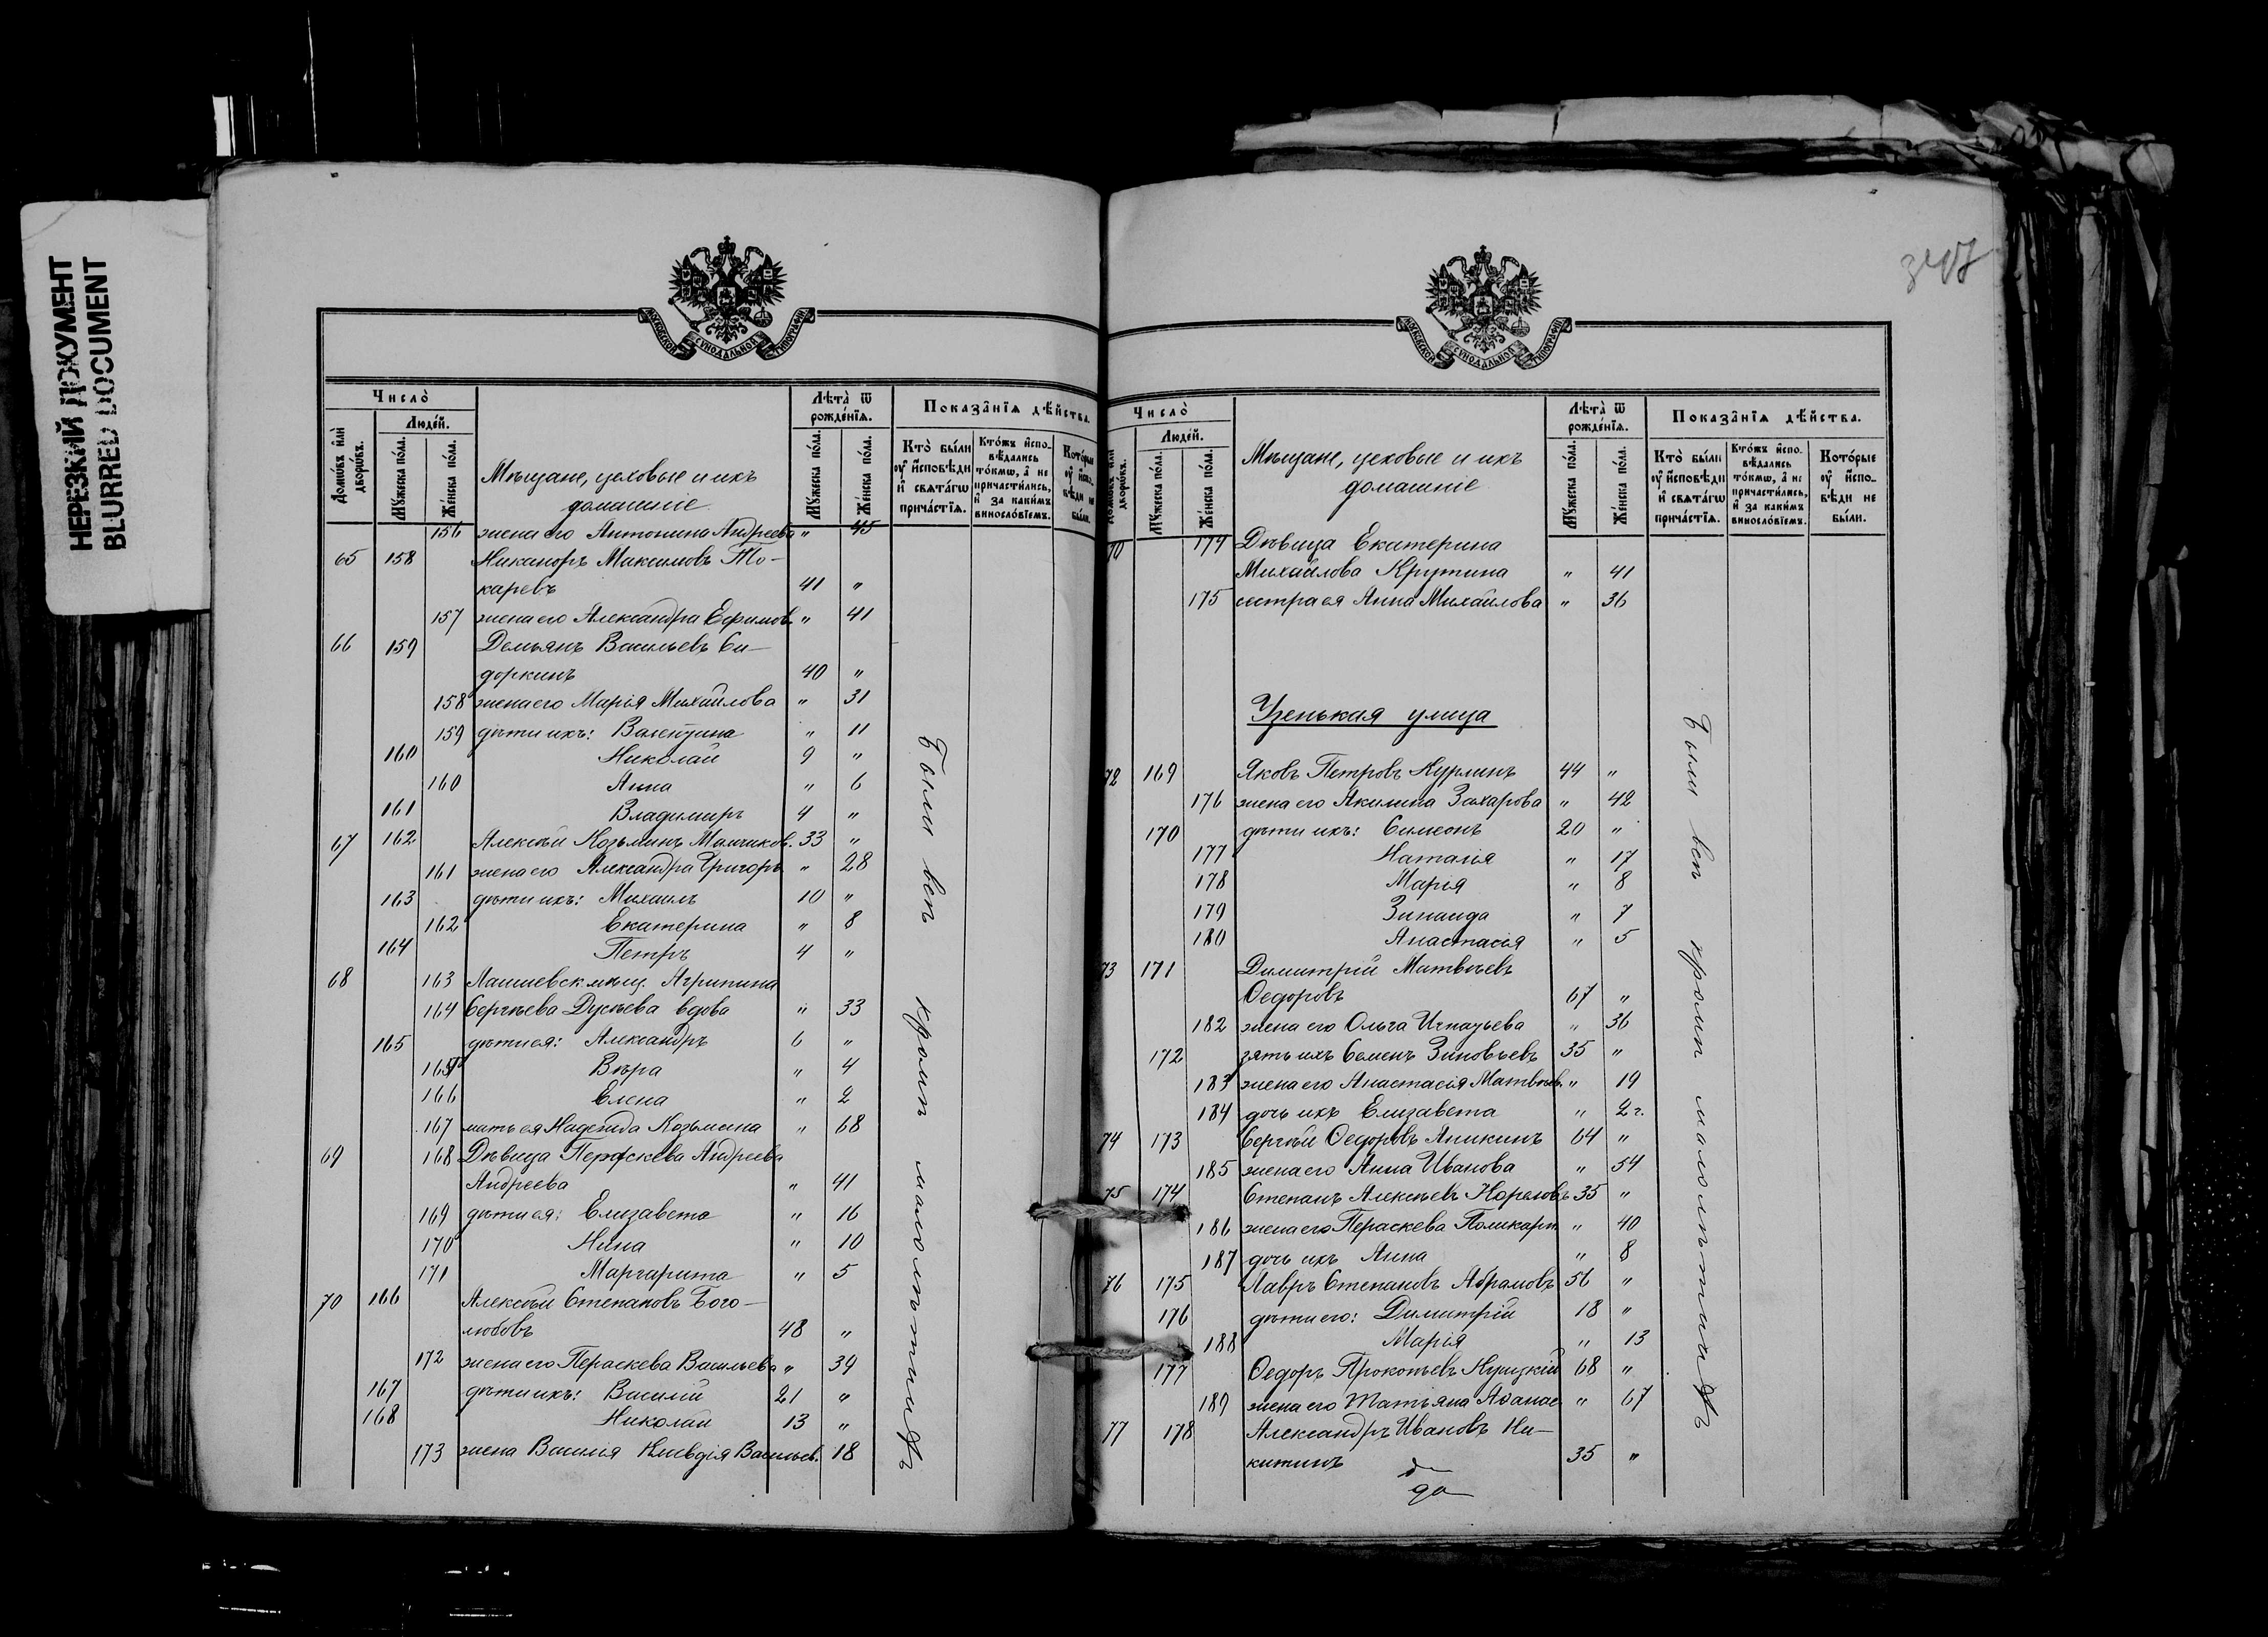 НЕРЕЗКИЙ ДОКУМЕНТ
BLURRED DOCUMENT
МОСКОВСКОЙ СѴНОДАЛЬНОЙ ТИПОГРАФІИ
Число̀
Люде́й.
Домѡ́въ и҆лѝ дворѡ́въ.
Мꙋ́жеска по́ла.
Же́нска по́ла.
Мѣщане, цеховые и ихъ
домашніе
Лѣта̀ ѿ рожде́нїѧ.
Мꙋ́жеска по́ла.
Же́нска по́ла.
Показа̑нїѧ дѣ́йства.
Кто̀ бы́ли ᲂу҆ и҆сповѣ́ди и҆ свѧта́гѡ прича́стїѧ.
Кто́жъ и҆спо-вѣ́дались то́кмѡ, а҆ не причасти́лись, и҆ за каки́мъ винослові́емъ.
Кото́рые ᲂу҆ и҆спо-вѣ́ди не бы́ли.
156 жена его Антонина Андреева " 45
65 158 Никаноръ Максимовъ То-
каревъ 41 "
157 жена его Александра Ефимов. " 41
66 159 Демьянъ Васильевъ Си-
доркинъ 40 "
158 жена его Марія Михайлова " 31
159 дѣти ихъ: Валентина " 11
160 Николай 9 "
160 Анна " 6
161 Владимиръ 4 "
67 162 Алексѣй Козьминъ 33 "
161 жена его Александра Григорь. " 28
163 дѣти ихъ: Михаилъ 10 "
162 Екатерина " 8
164 Петръ 4 "
68 163 Лаишевск. мѣщ. Агрипина
164 Сергѣева Дусѣева вдова " 33
165 дѣти ея: Александръ 6 "
165 Вѣра " 4
166 Елена " 2
167 мать ея Надежда Козьмина " 68
69 168 Дѣвица Пераскева Андреева
Андреева " 41
169 дѣти ея: Елизавета " 16
170 Нина " 10
171 Маргарита " 5
70 166 Алексѣй Степановъ Бого-
любовъ 48 "
172 жена его Пераскева Васильева " 39
167 дѣти ихъ: Василій 21 "
168 Николай 13 "
173 жена Василія Васильев. 18
Были всѣ кромѣ малолѣтнихъ
МОСКОВСКОЙ СѴНОДАЛЬНОЙ ТИПОГРАФІИ
Число̀
Люде́й.
Домѡ́въ и҆лѝ дворѡ́въ.
Мꙋ́жеска по́ла.
Же́нска по́ла.
Мѣщане, цеховые и ихъ
домашніе
Лѣта̀ ѿ рожде́нїѧ.
Мꙋ́жеска по́ла.
Же́нска по́ла.
Показа̑нїѧ дѣ́йства.
Кто̀ бы́ли ᲂу҆ и҆сповѣ́ди и҆ свѧта́гѡ прича́стїѧ.
Кто́жъ и҆спо-вѣ́дались то́кмѡ, а҆ не причасти́лись, и҆ за каки́мъ винослові́емъ.
Кото́рые ᲂу҆ и҆спо-вѣ́ди не бы́ли.
70 174 Дѣвица Екатерина
Михайлова Крутина " 41
175 сестра ея Анна Михайлова " 36
Узенькая улица
72 169 Яковъ Петровъ Курлинъ 44 "
176 жена его Акилина Захарова " 42
170 дѣти ихъ: Симеонъ 20 "
177 Наталія " 17
178 Марія " 8
179 Зинаида " 7
180 Анастасія " 5
73 171 Димитрій Матвѣевъ
Ѳедоровъ 67 "
182 жена его Ольга Игнатьева " 36
172 зять ихъ Семенъ Зиновьевъ 35 "
183 жена его Анастасія Матвѣев. " 19
184 дочь ихъ Елизавета " 2 г.
74 173 Сергѣй Ѳедоровъ Аникинъ 64 "
185 жена его Анна Иванова " 54
75 174 Степанъ Алексѣевъ 35 "
186 жена его Пераскева Поликарп. " 40
187 дочь ихъ Анна " 8
76 175 Лавръ Степановъ Абрамовъ 56 "
176 дѣти его: Димитрій 18 "
188 Марія " 13
177 Ѳедоръ Прокопьевъ 68 "
189 жена его Татьяна Аѳанас. " 67
77 178 Александръ Ивановъ Ни-
китинъ 35 "
Были всѣ кромѣ малолѣтнихъ